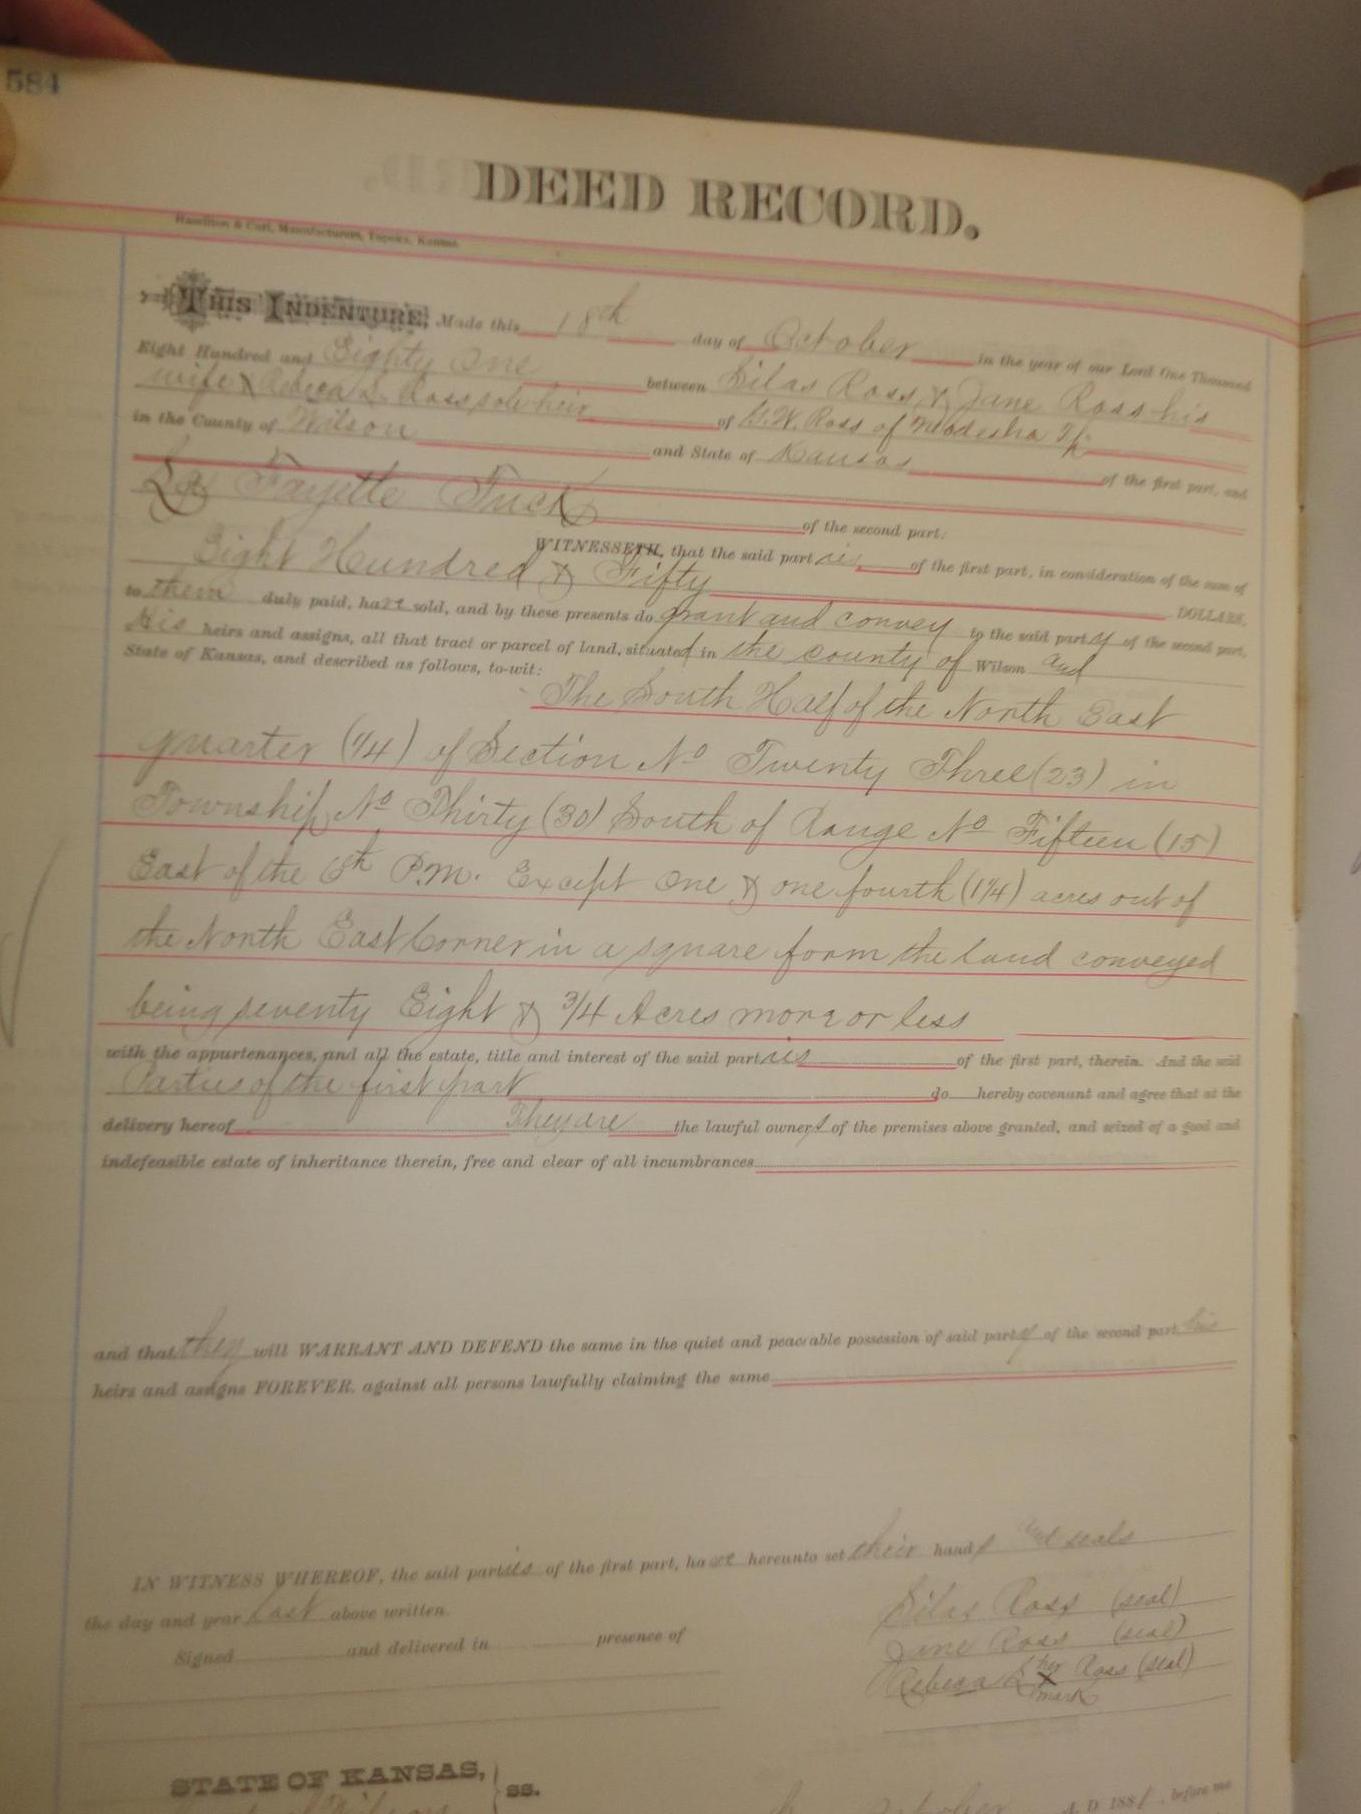 584
DEED RECORD.
Hamilton & Carl, Manufacturers, Topeka, Kansas
THIS INDENTURE, Made this 18th day of October in the year of our Lord One Thousand
Eight Hundred and Eighty One between Silas Ross & Jane Ross his
wife & Rebeca L. Ross sole heir of G.W. Ross of Neodesha Tp
in the County of Wilson and State of Kansas of the first part, and
La Fayette Tuck of the second part:
WITNESSETH, that the said parties of the first part, in consideration of the sum of
Eight Hundred & Fifty DOLLARS,
to them duly paid, have sold, and by these presents do grant and convey to the said party of the second part,
His heirs and assigns, all that tract or parcel of land, situated in the county of Wilson and
State of Kansas, and described as follows, to-wit:
The South Half of the North East
quarter (1/4) of Section No Twenty Three (23) in
Township No Thirty (30) South of Range No Fifteen (15)
East of the 6th P.M. Except One & one fourth (1 1/4) acres out of
the North East Corner in a square form the land conveyed
being seventy Eight & 3/4 Acres more or less
with the appurtenances, and all the estate, title and interest of the said parties of the first part, therein. And the said
Parties of the first part do hereby covenant and agree that at the
delivery hereof They are the lawful owners of the premises above granted, and seized of a good and
indefeasible estate of inheritance therein, free and clear of all incumbrances
and that they will WARRANT AND DEFEND the same in the quiet and peaceable possession of said party of the second part his
heirs and assigns FOREVER, against all persons lawfully claiming the same
IN WITNESS WHEREOF, the said parties of the first part, have hereunto set their hands and seals
the day and year last above written.
Signed and delivered in presence of
Silas Ross (seal)
Jane Ross (seal)
Rebeca L her X Ross (seal)
mark
STATE OF KANSAS, ss.
October A. D. 1881, before me